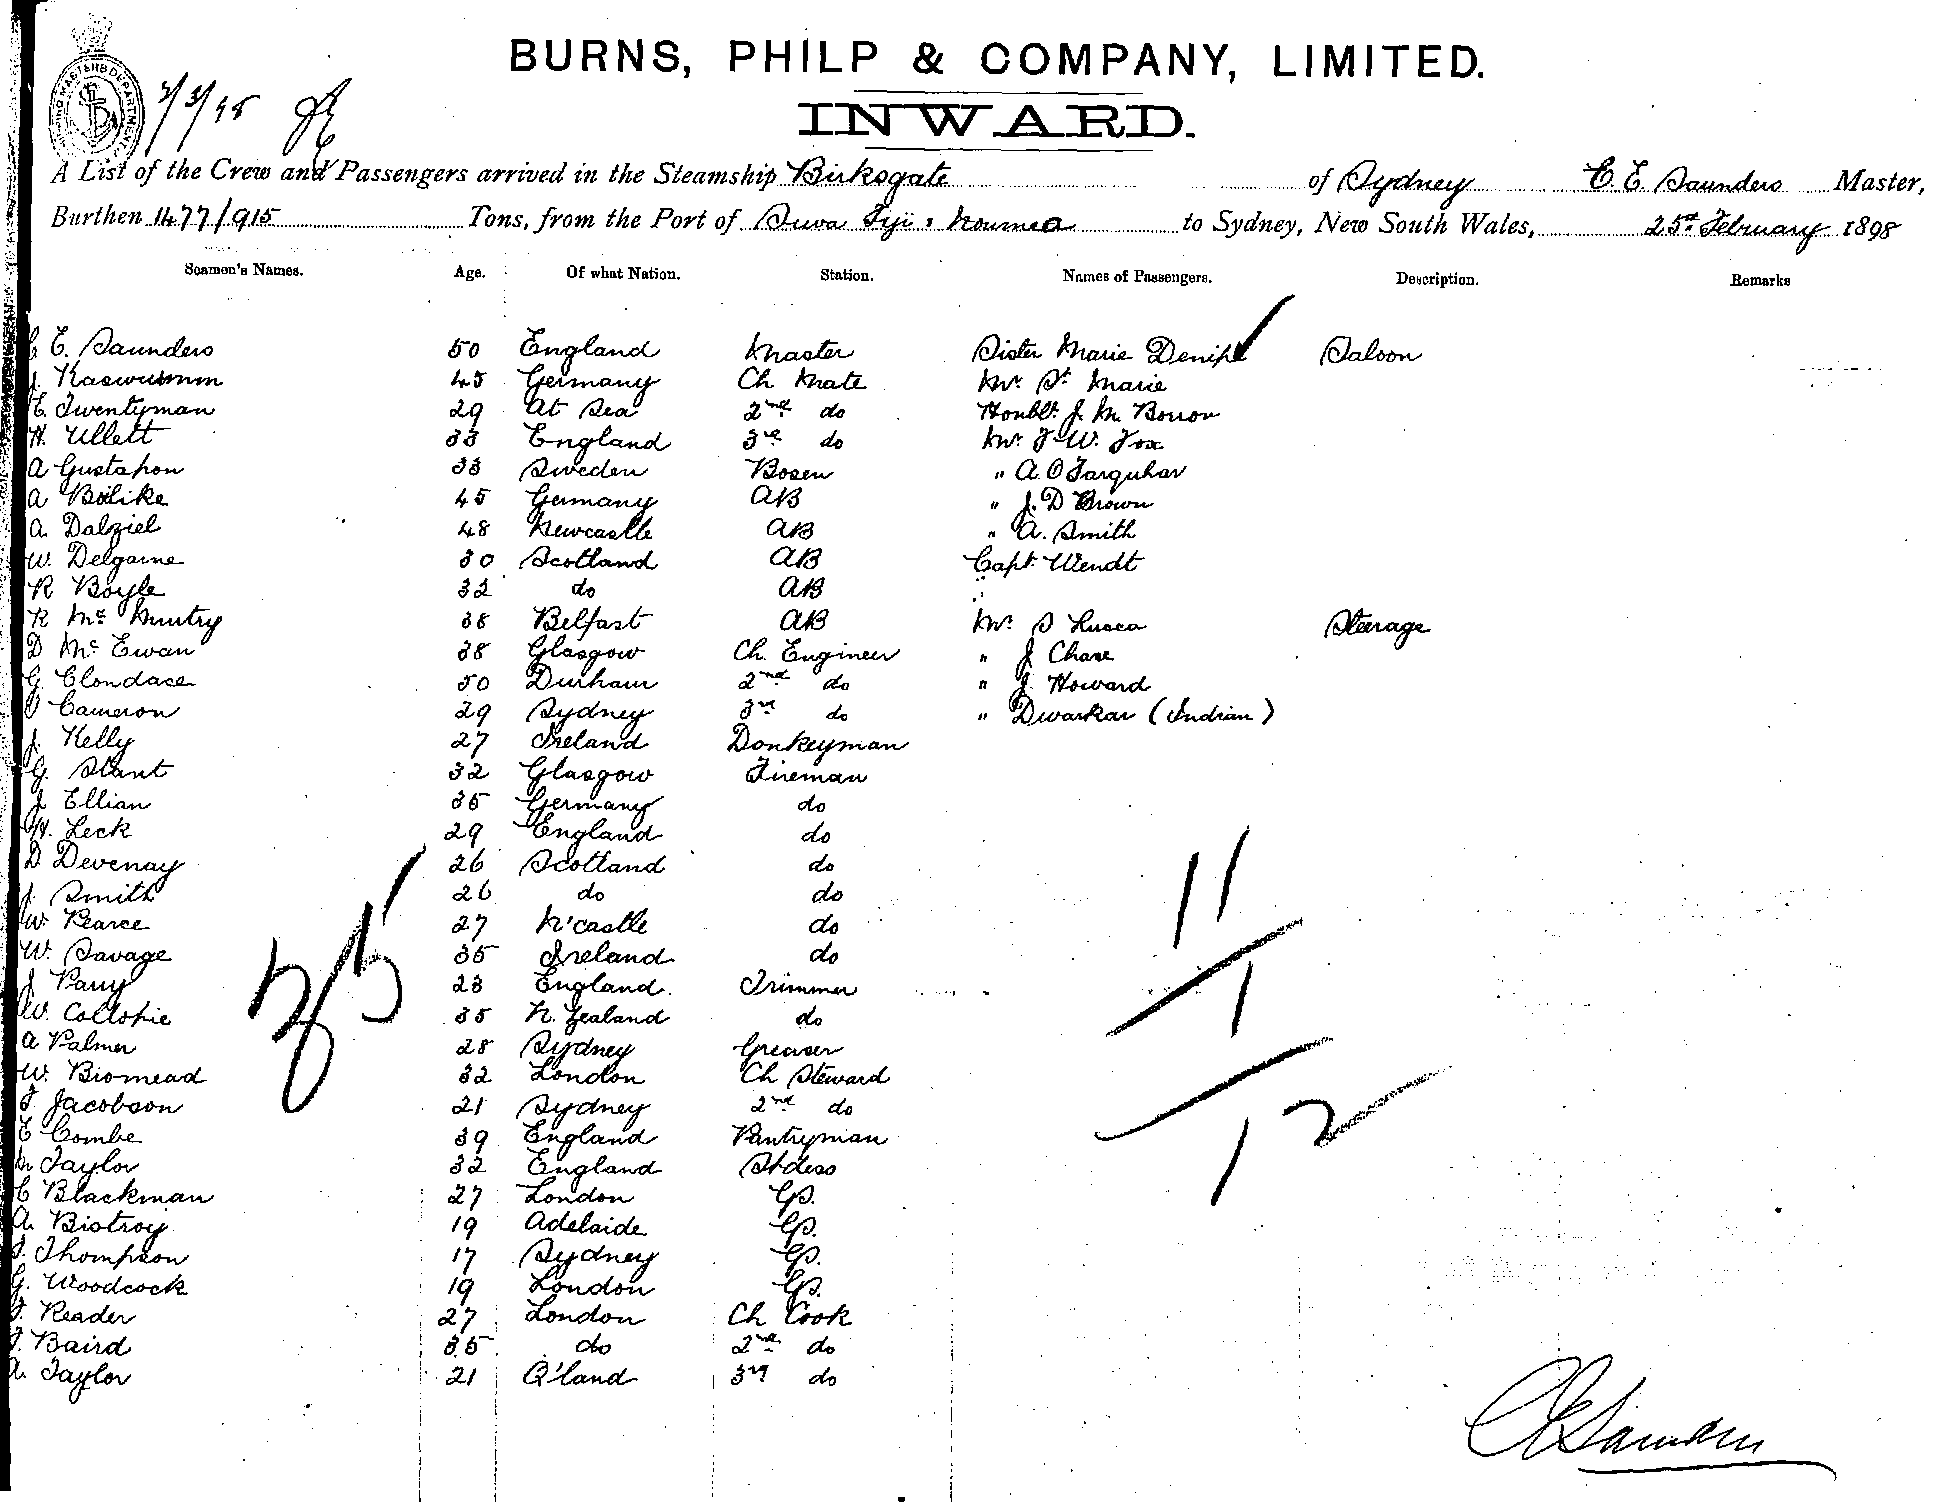 BURNS, PHILP & COMPANY, LIMITED.
INWARD.
A List of the Crew and Passengers arrived in the Steamship Birksgate of Sydney C. E. Saunders Master,
Burthen 1477/915 Tons, from the Port of Suva Fiji & Noumea to Sydney, New South Wales, 25th February 1898
Seamen's Names. Age. Of what Nation. Station. Names of Passengers. Description. Remarks
C E. Saunders 50 England Master Sister Marie Saloon
J. 45 Germany Ch Mate Mr St Marie
E. Twentyman 29 At Sea 2nd do Honble J. M. Borron
H. Ullett 33 England 3rd do Mr F. W. Fox
A Gustafson 33 Sweden Bosen " A. O Farquhar
A Bülike 45 Germany AB " J. D Brown
A. Dalziel 48 Newcastle AB " A. Smith
W. Delgarne 30 Scotland AB Capt Wendt
R Boyle 32 do AB
R Mc Muntry 38 Belfast AB Mr S Lucca Steerage
D McEwan 38 Glasgow Ch. Engineer " J Chase
G. Clondace 50 Durham 2nd do " J. Howard
Cameron 29 Sydney 3rd do " Dwarkar (Indian)
J. Kelly 27 Ireland Donkeyman
G. Stant 32 Glasgow Fireman
J Ellian 35 Germany do
H. Leck 29 England do
D Devenay 26 Scotland do
J. Smith 26 do do
W. Pearce 27 N'castle do
W. Savage 35 Ireland do
J Parry 23 England. Trimmer
W. Collopie 35 N. Zealand do
A Palmer 28 Sydney Greaser
W. Biomead 32 London Ch Steward
F. Jacobson 21 Sydney 2nd do
E Combe 39 England Pantryman
M Taylor 32 England Stdess
C Blackman 27 London Gs.
A. Bistroy 19 Adelaide Gs.
J. Thompson 17 Sydney Gs.
G. Woodcock 19 London Gs.
F. Reader 27 London Ch Cook
J. Baird 35 do 2nd do
A. Taylor 21 Q'land 3rd do
35
11
1
12
C E Saunders